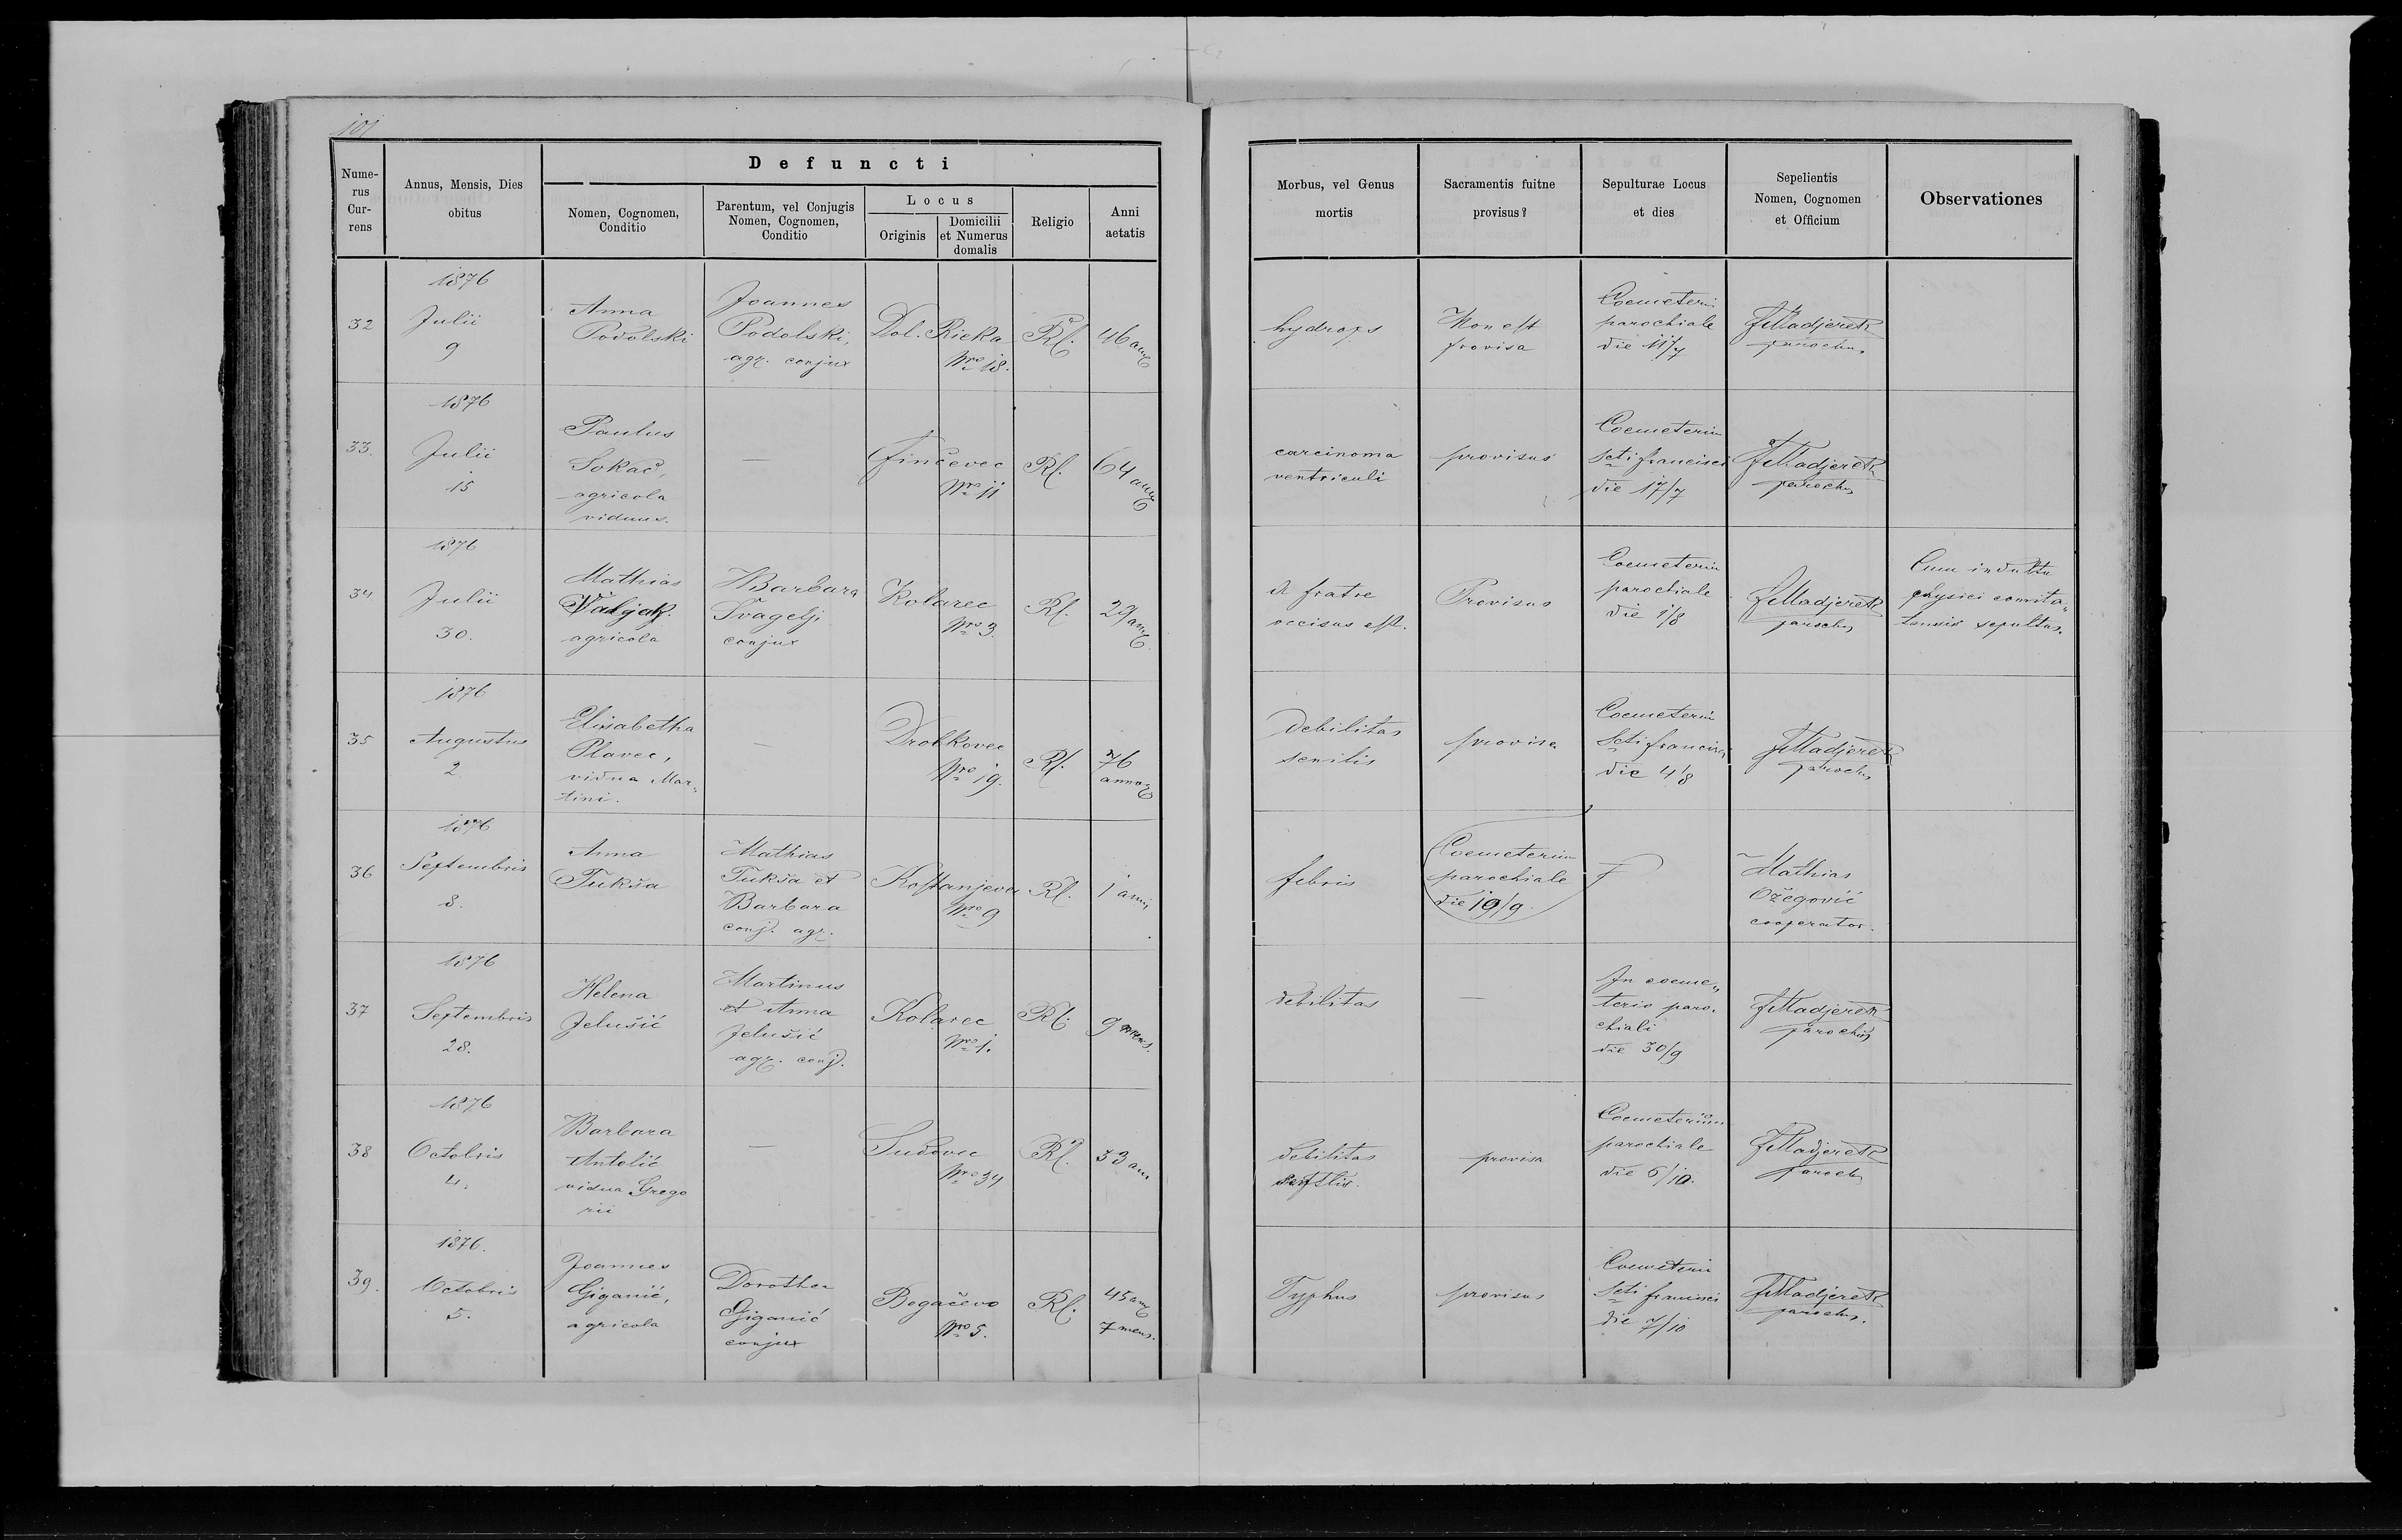 101
Nume-
rus
Cur-
rens
Annus, Mensis, Dies
obitus
Defuncti
Nomen, Cognomen,
Conditio
Parentum, vel Conjugis
Nomen, Cognomen,
Conditio
Locus
Originis
Domicilii
et Numerus
domalis
Religio
Anni
aetatis
Morbus, vel Genus
mortis
Sacramentis fuitne
provisus?
Sepulturae Locus
et dies
Sepelientis
Nomen, Cognomen
et Officium
Observationes
32
1876
Julii
9
Anna
Podolski
Joannes
Podolski,
agr. conjux
Dol. Rieka
Nro 18.
Rl.
46 ann
hydrops
Non est
provisa
Coemeterii
parochiale
die 11/7
FMadjerek
parochus
33.
1876
Julii
15
Paulus
Sokač,
agricola
viduus.
—
Finčevec
Nro 11
Rl.
64 ann
carcinoma
ventriculi
provisus
Coemeterium
Scti francisci
die 17/7
FMadjerek
parochus
34
1876
Julii
30.
Mathias
Valjak.
agricola
Barbara
Švagelj
conjux
Kolarec
Nro 3.
Rl.
29 ann
A fratre
occisus est.
Provisus
Coemeterium
parochiale
die 1/8
FMadjerek
parochus
Cum indultu
physici comita„
tensis sepultus.
35
1876
Augustus
2
Elisabetha
Plavec,
vidua Mar„
tini.
—
Drobkovec
Nro 19.
Rl.
76
annor
Debilitas
senilis
provisa
Coemeterium
Scti francisci
die 4/8
FMadjerek
parochus
36
1876
Septembris
8.
Anna
Tukša
Mathias
Tukša et
Barbara
conj. agr.
Kostanjevec
Nro 9
Rl.
1 anni
febris
Coemeterium
parochiale
die 19/9.
Mathias
Ožegović
cooperator.
37
1876
Septembris
28.
Helena
Jelušić
Martinus
et Anna
Jelušić
agr. conj.
Kolarec
Nro 1.
Rl.
9 mens.
Debilitas
—
In coeme„
terio paro„
chiali
die 30/9
FMadjerek
parochus
38
1876
Octobris
4.
Barbara
Antolić
vidua Grego
rii
—
Sudovec
Nro 34
Rl.
53 ann
Debilitas
provisa
Coemeterium
parochiale
die 6/10.
FMadjerek
paroch
39.
1876.
Octobris
5.
Joannes
Giganić,
agricola
Dorothea
Giganić
conjux
Bogačevo
Nro 5.
Rl.
45 ann
7 mens.
Typhus
provisus
Coemeterii
Scti francisci
die 7/10
FMadjerek
parochus.